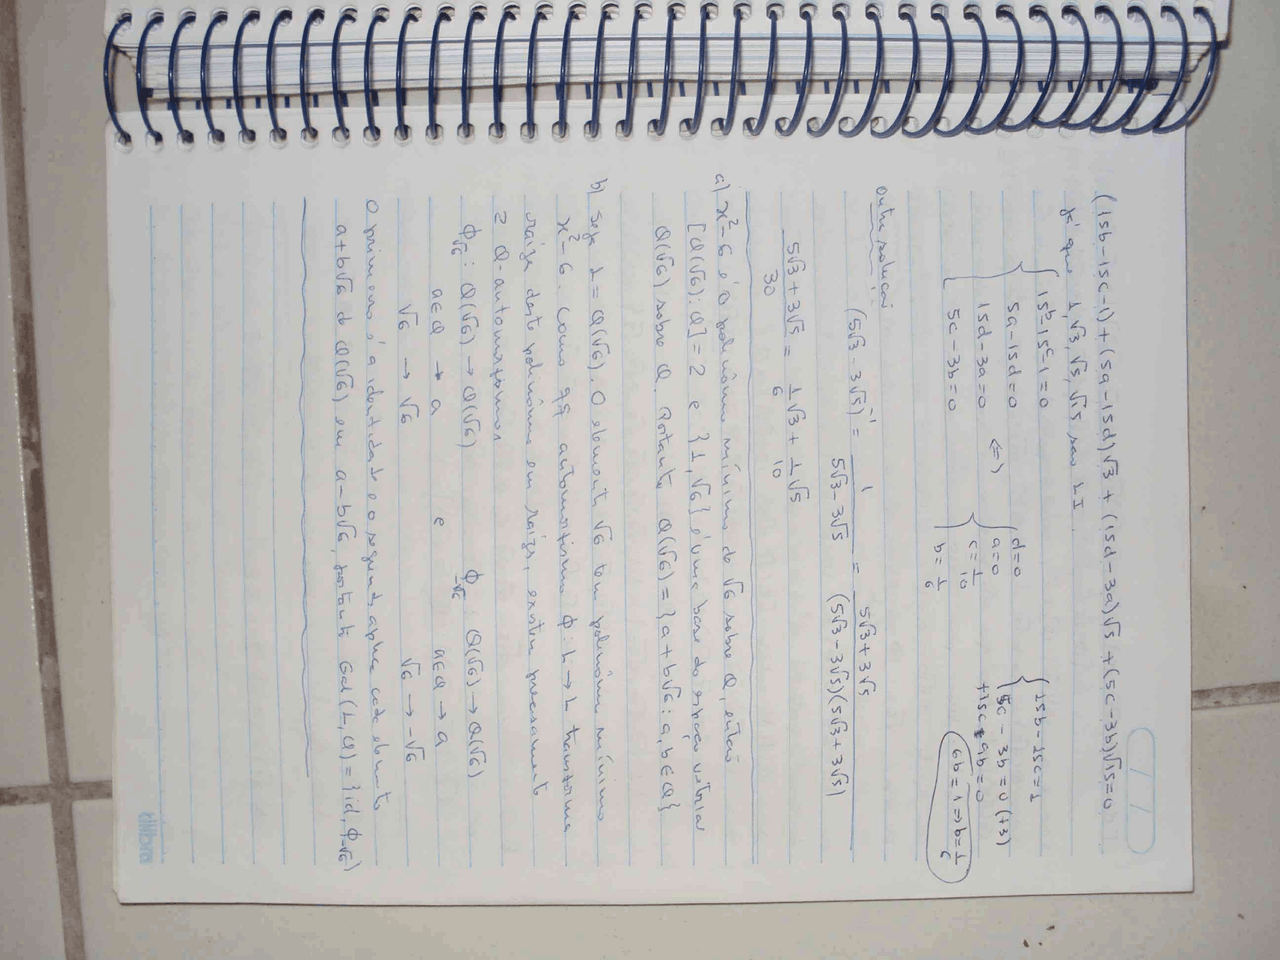 (15b-15c-1) + (5a-15d)√3 + (15d-3a)√5 + (5c-3b)√15=0
já que 1, √3, √5, √15 são LI.
15b-15c-1=0
5a-15d=0
15d-3a=0
5c-3b=0
<=>
d=0
a=0
c=1/10
b=1/6
15b-15c=1
5c-3b=0 (+3)
+15c-9b=0
6b=1 => b=1/6
outra solução
(5√3-3√5)⁻¹ = 1/(5√3-3√5) = (5√3+3√5)/((5√3-3√5)(5√3+3√5))
(5√3+3√5)/30 = 1/6 √3 + 1/10 √5
a) x²-6 é o polinômio mínimo de √6 sobre Q, então
[Q(√6):Q]=2 e {1,√6} é uma base do espaço vetorial
Q(√6) sobre Q. Portanto Q(√6)={a+b√6: a,b∈Q}
b) Seja L=Q(√6). O elemento √6 tem polinômio mínimo
x²-6. Como qq automorfismo ϕ: L→L transforma
raízes deste polinômio em raízes, existem precisamente
2 Q-automorfismos
ϕ√6: Q(√6)→Q(√6) ϕ-√6: Q(√6)→Q(√6)
a∈Q → a e a∈Q → a
√6 → √6 √6 → -√6
O primeiro é a identidade e o segundo aplica cada elemento
a+b√6 de Q(√6) em a-b√6, portanto Gal(L,Q)={id, ϕ-√6}
tilibra